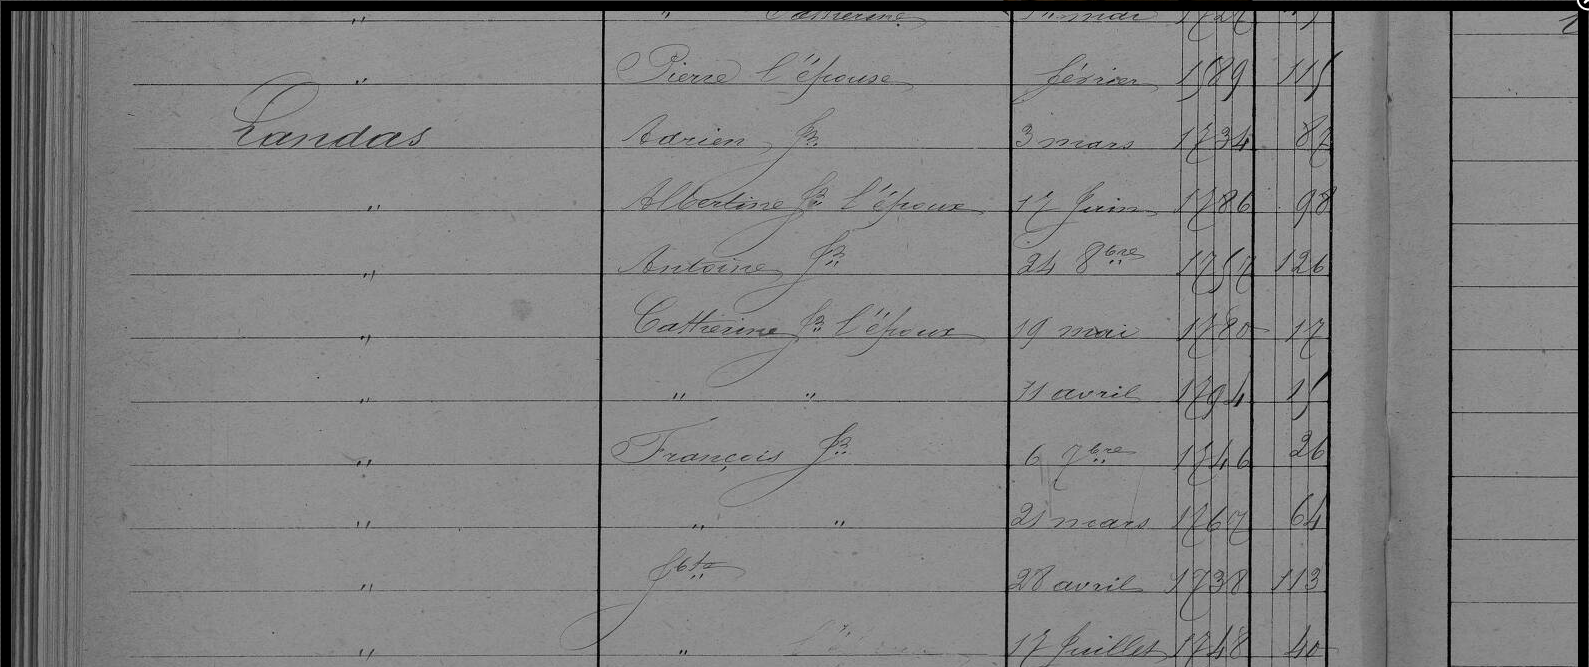 " " Catherine mai
" Pierre l'épouse février 1589 115
Landas Adrien Jh 3 mars 1734 87
" Albertine Jh l'époux 17 Juin 1786 98
" Antoine Jh 24 8bre 1757 126
" Catherine Jh l'époux 19 mai 1780 17
" " " 11 avril 1794 15
" François Jh 6 7bre 1746 26
" " " 21 mars 1767 64
" Jbte 28 avril 1738 113
" " 17 Juillet 1748 40